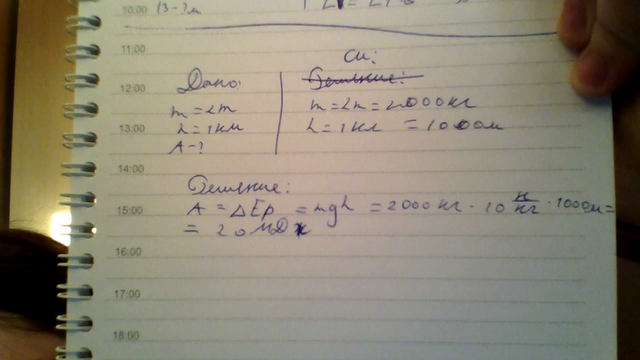 10:00
11:00
СИ:
Дано:
Решение:
12:00
m = 2т
m = 2т = 2000кг
h = 1км
h = 1км = 1000м
13:00
A - ?
14:00
Решение:
A = ΔEp = mgh = 2000 кг · 10 Н/кг · 1000м =
15:00
= 20 МДж
16:00
17:00
18:00